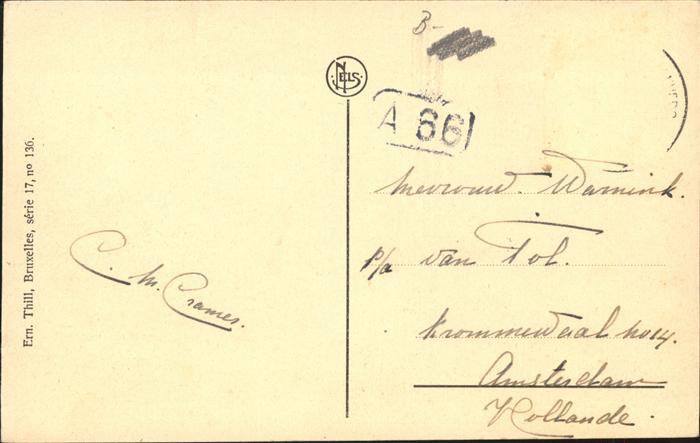 B-
NELS
A 66
Ern. Thill, Bruxelles, série 17, nº 136.
C. M. Crames.
Mevrouw. Warnink.
p/a van Tol.
Krommewaal no 14.
Amsterdam
Hollande.